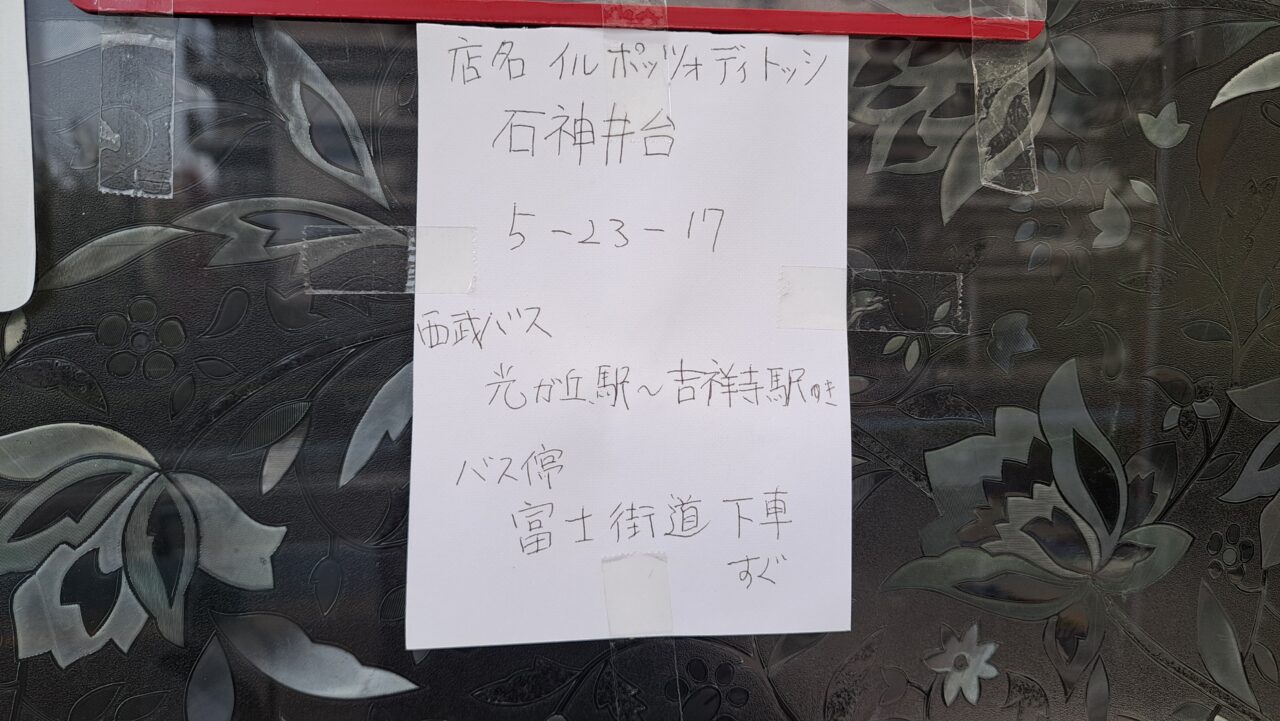 店名 イルポッツォディトッシ
石神井台
5-23-17
西武バス
光が丘駅〜吉祥寺駅ゆき
バス停
富士街道 下車
すぐ